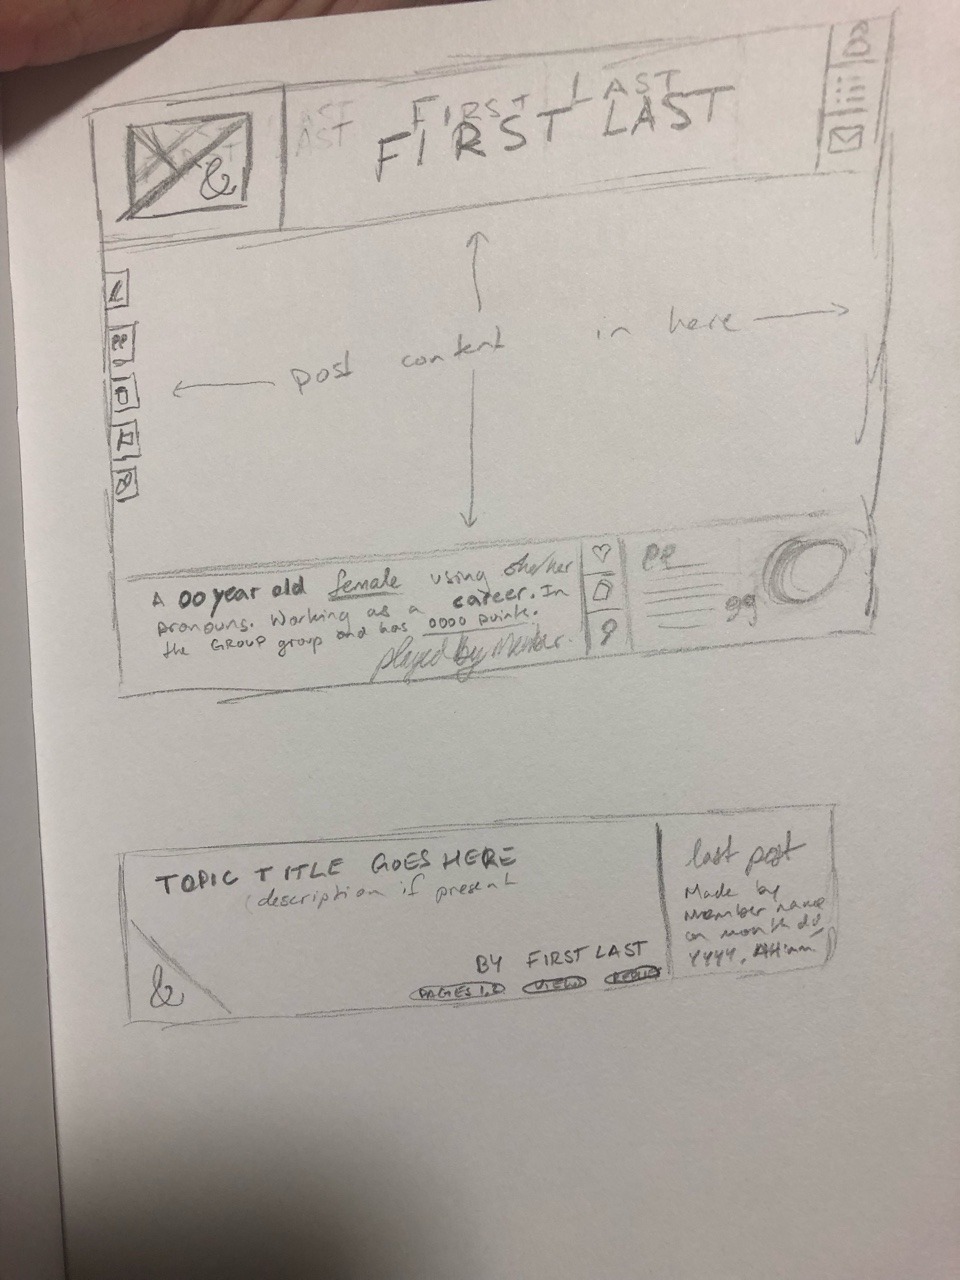 &
FIRST LAST
FIRST LAST
post content in here
A 00 year old female using she/her
pronouns. Working as a career. In
the GROUP group and has 0000 points.
played by Member.
gg
TOPIC TITLE GOES HERE
(description if present
&
BY FIRST LAST
PAGES 1, 2 VIEWS REPLIES
last post
Made by
Member name
on month dd,
YYYY, HH:mm